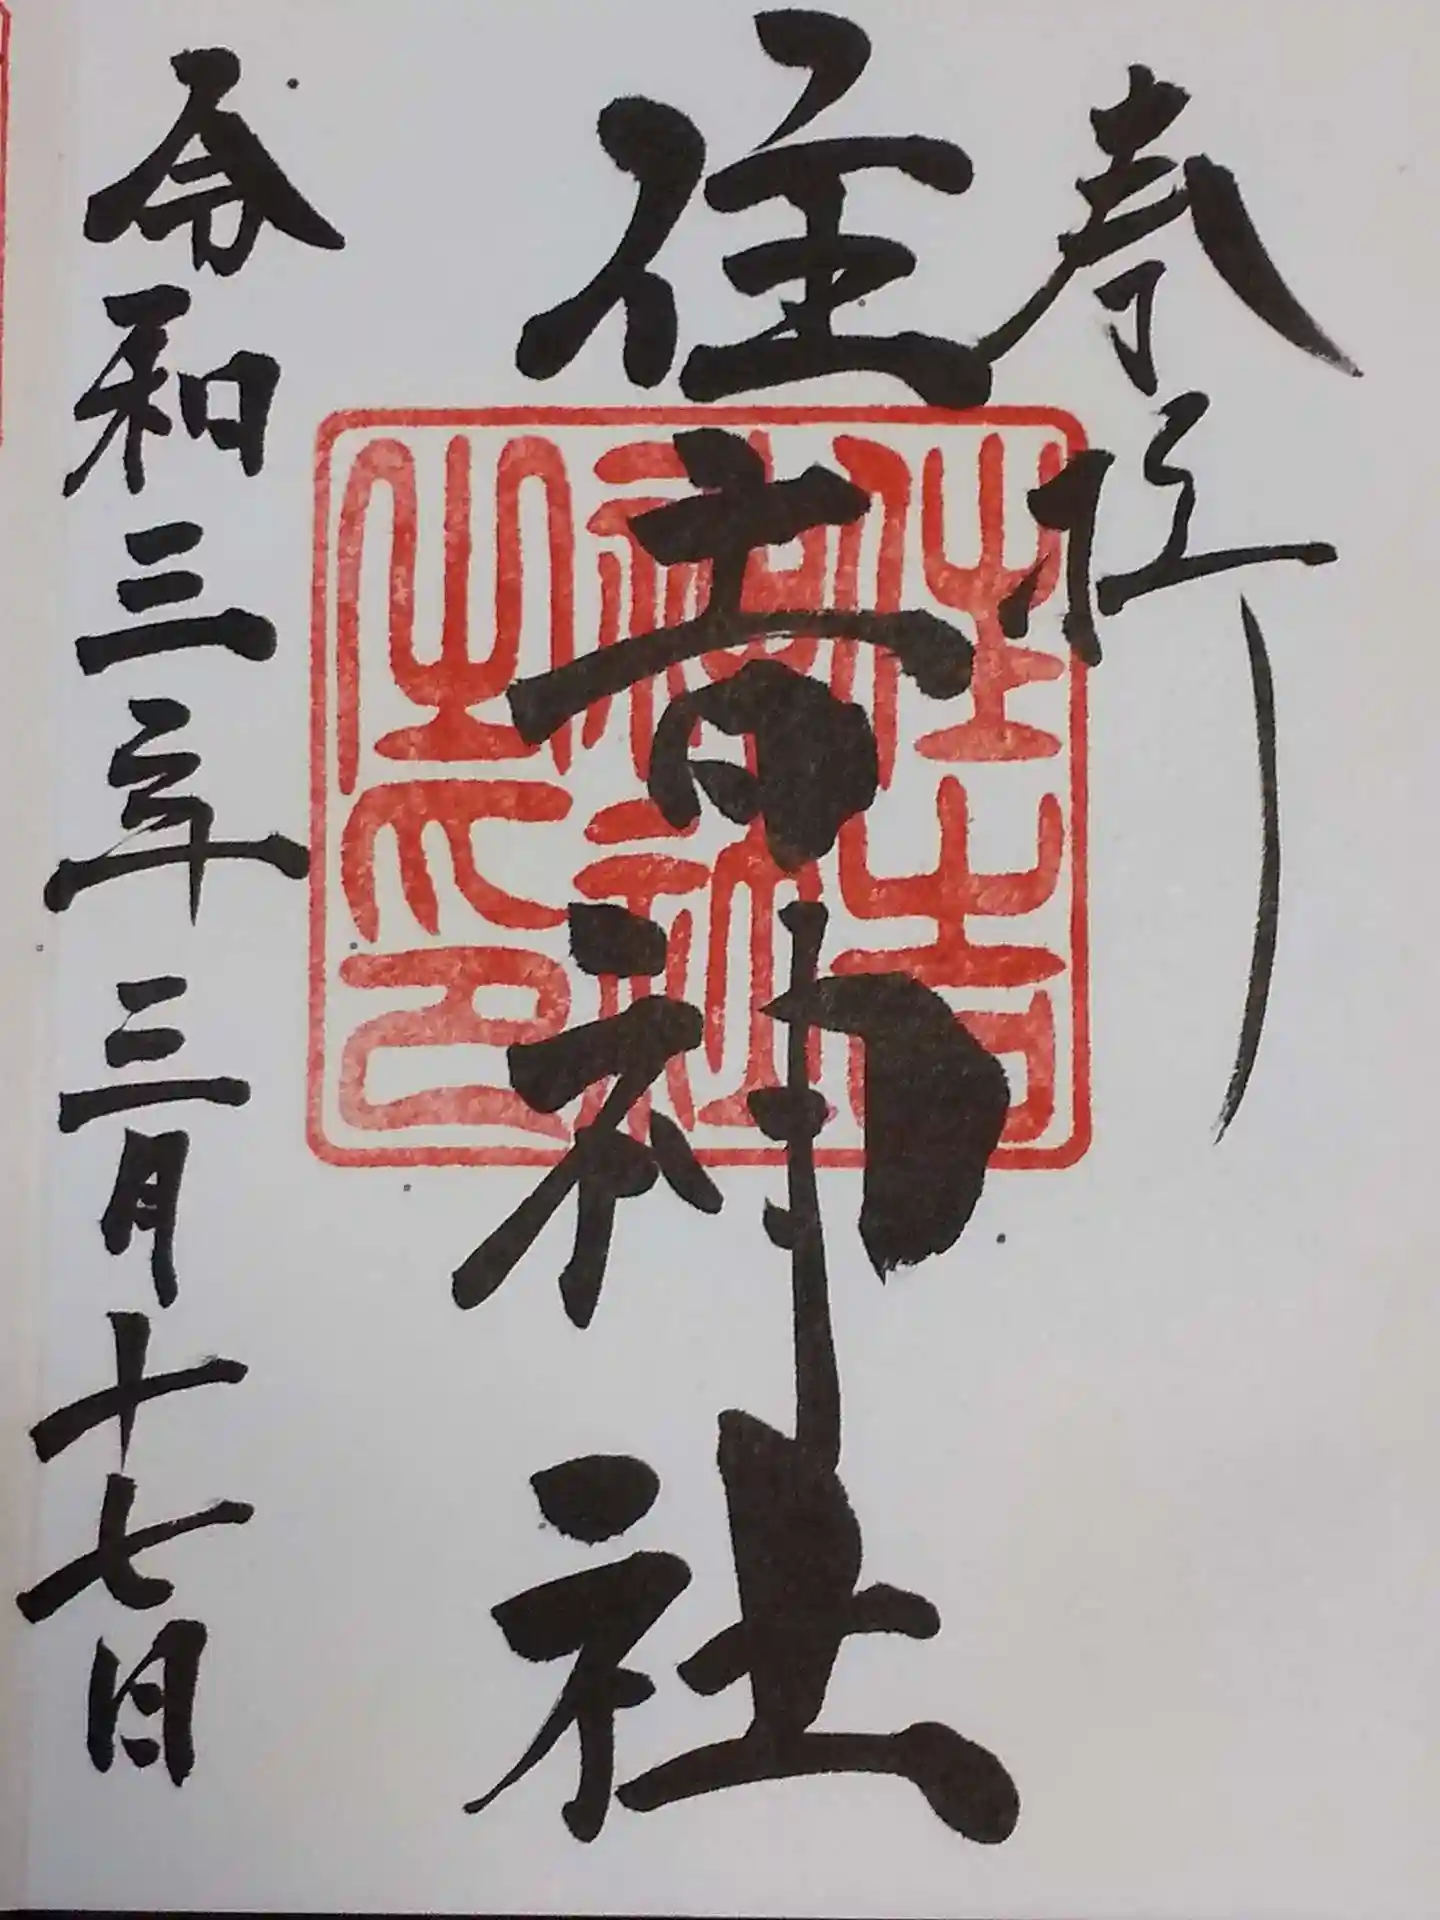 奉拝
住吉神社
住吉神社之印
令和三年三月十七日